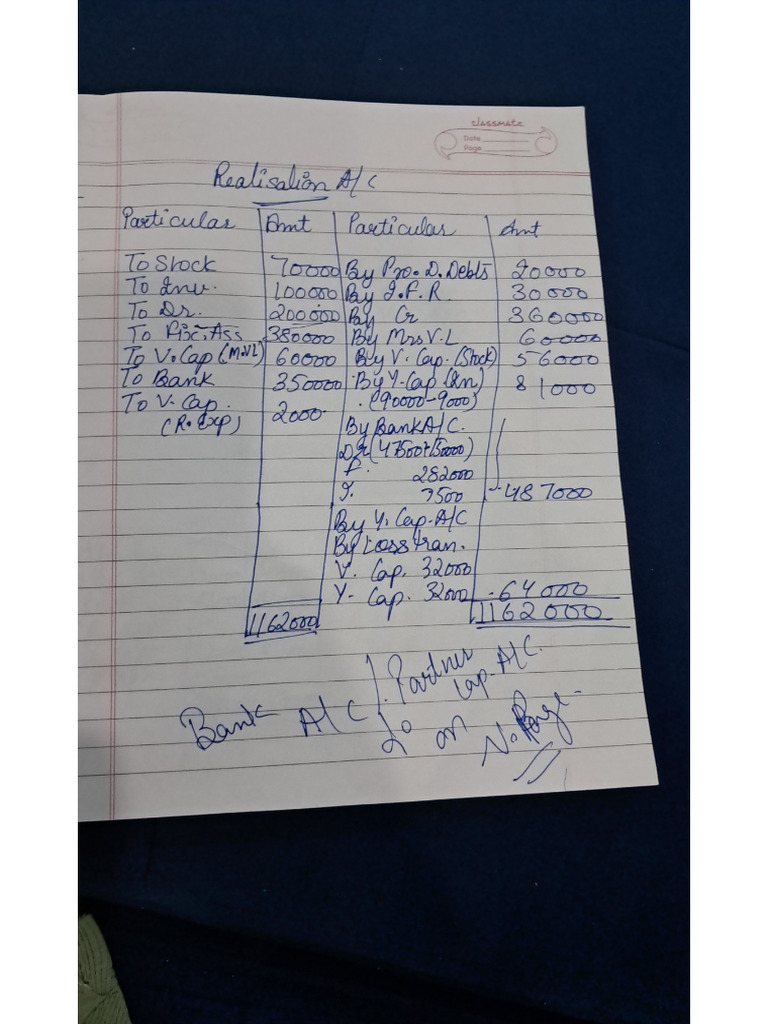 classmate
Date
Page
Realisation A/C
Particular Amt Particular Amt
To Stock 70000 By Pro. D. Debts 20000
To Inv. 100000 By I.F.R. 30000
To Dr. 200000 By Cr 360000
To Fix. Ass 380000 By Mrs V.L 60000
To V. Cap (M.VL) 60000 By V. Cap. (Stock) 56000
To Bank 350000 By Y. Cap (In) 81000
To V. Cap. 2000 (90000-9000)
(R. Exp) By Bank A/C.
Dr (47500+150000)
F. 282000
I. 7500 487000
By Y. Cap. A/C
By Loss tran.
V. Cap. 32000
Y. Cap. 32000 64000
1162000 1162000
Bank A/C / Partner Cap. A/C.
on N. Page